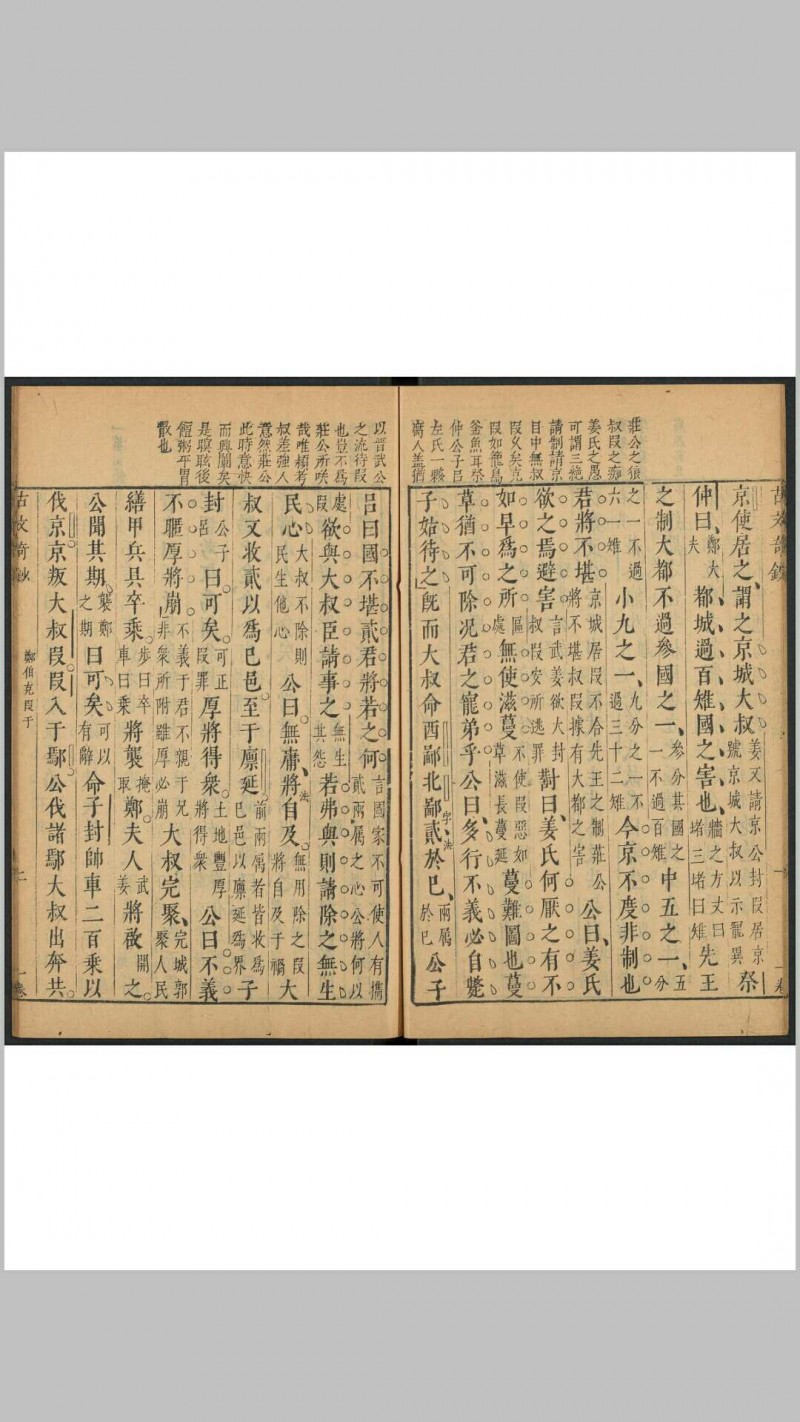 莊公之狠
叔段之癡
姜氏之愚
可謂三絶
請制請京
目中無叔
段久矣克
段如籠鳥
釜魚耳祭
仲公子呂
左氏一夥
京使居之謂之京城大叔姜又請京公封段居京號京城大叔以示寵異祭
仲曰鄭大夫都城過百雉國之害也牆之方丈曰堵三堵曰雉先王
之制大都不過參國之一參分其國之一不過百雉中五之一五分
之一不過六一雉小九之一九分之一不過三十二雉今京不度非制也
君將不堪京城居段不合先王之制莊公將不堪叔段據有大都之害公曰姜氏
欲之焉避害言武姜欲大封叔段安所逃罪對曰姜氏何厭之有不
如早爲之所區處無使滋蔓不使段惡如草滋長蔓延蔓難圖也蔓
草猶不可除況君之寵弟乎公曰多行不義必自斃
子姑待之旣而大叔命西鄙北鄙貳於已兩屬於已公子
字法
以晋武公
之流待段
也豈不爲
莊公所咲
哉唯頴考
叔差强人
意然莊公
此時意快
而興闌矣
是瞑眩後
饘粥平胃
散也
呂曰國不堪貳君將若之何言國家不可使人有攜貳兩屬之心公將何以
處段欲與大叔臣請事之若弗與則請除之無生
無生其怨
民心大叔不除則民生他心公曰無庸將自及無用除之段將自及于禍大
法
叔又收貳以爲已邑至于廪延前兩属若皆收爲已邑以廪延爲界子
封公子呂曰可矣可正段罪厚將得衆土地豐厚將得衆公曰不義
不暱厚將崩不義于君不親于兄非衆所附雖厚必崩大叔完聚完城郭聚人民
繕甲兵具卒乘步曰卒車曰乘將襲掩取鄭夫人武姜將啟開之
公聞其期襲鄭之期曰可矣可以有辭命子封帥車二百乘以
伐京京叛大叔段段入于鄢公伐諸鄢大叔出奔共
鄭伯克段于
二
一卷